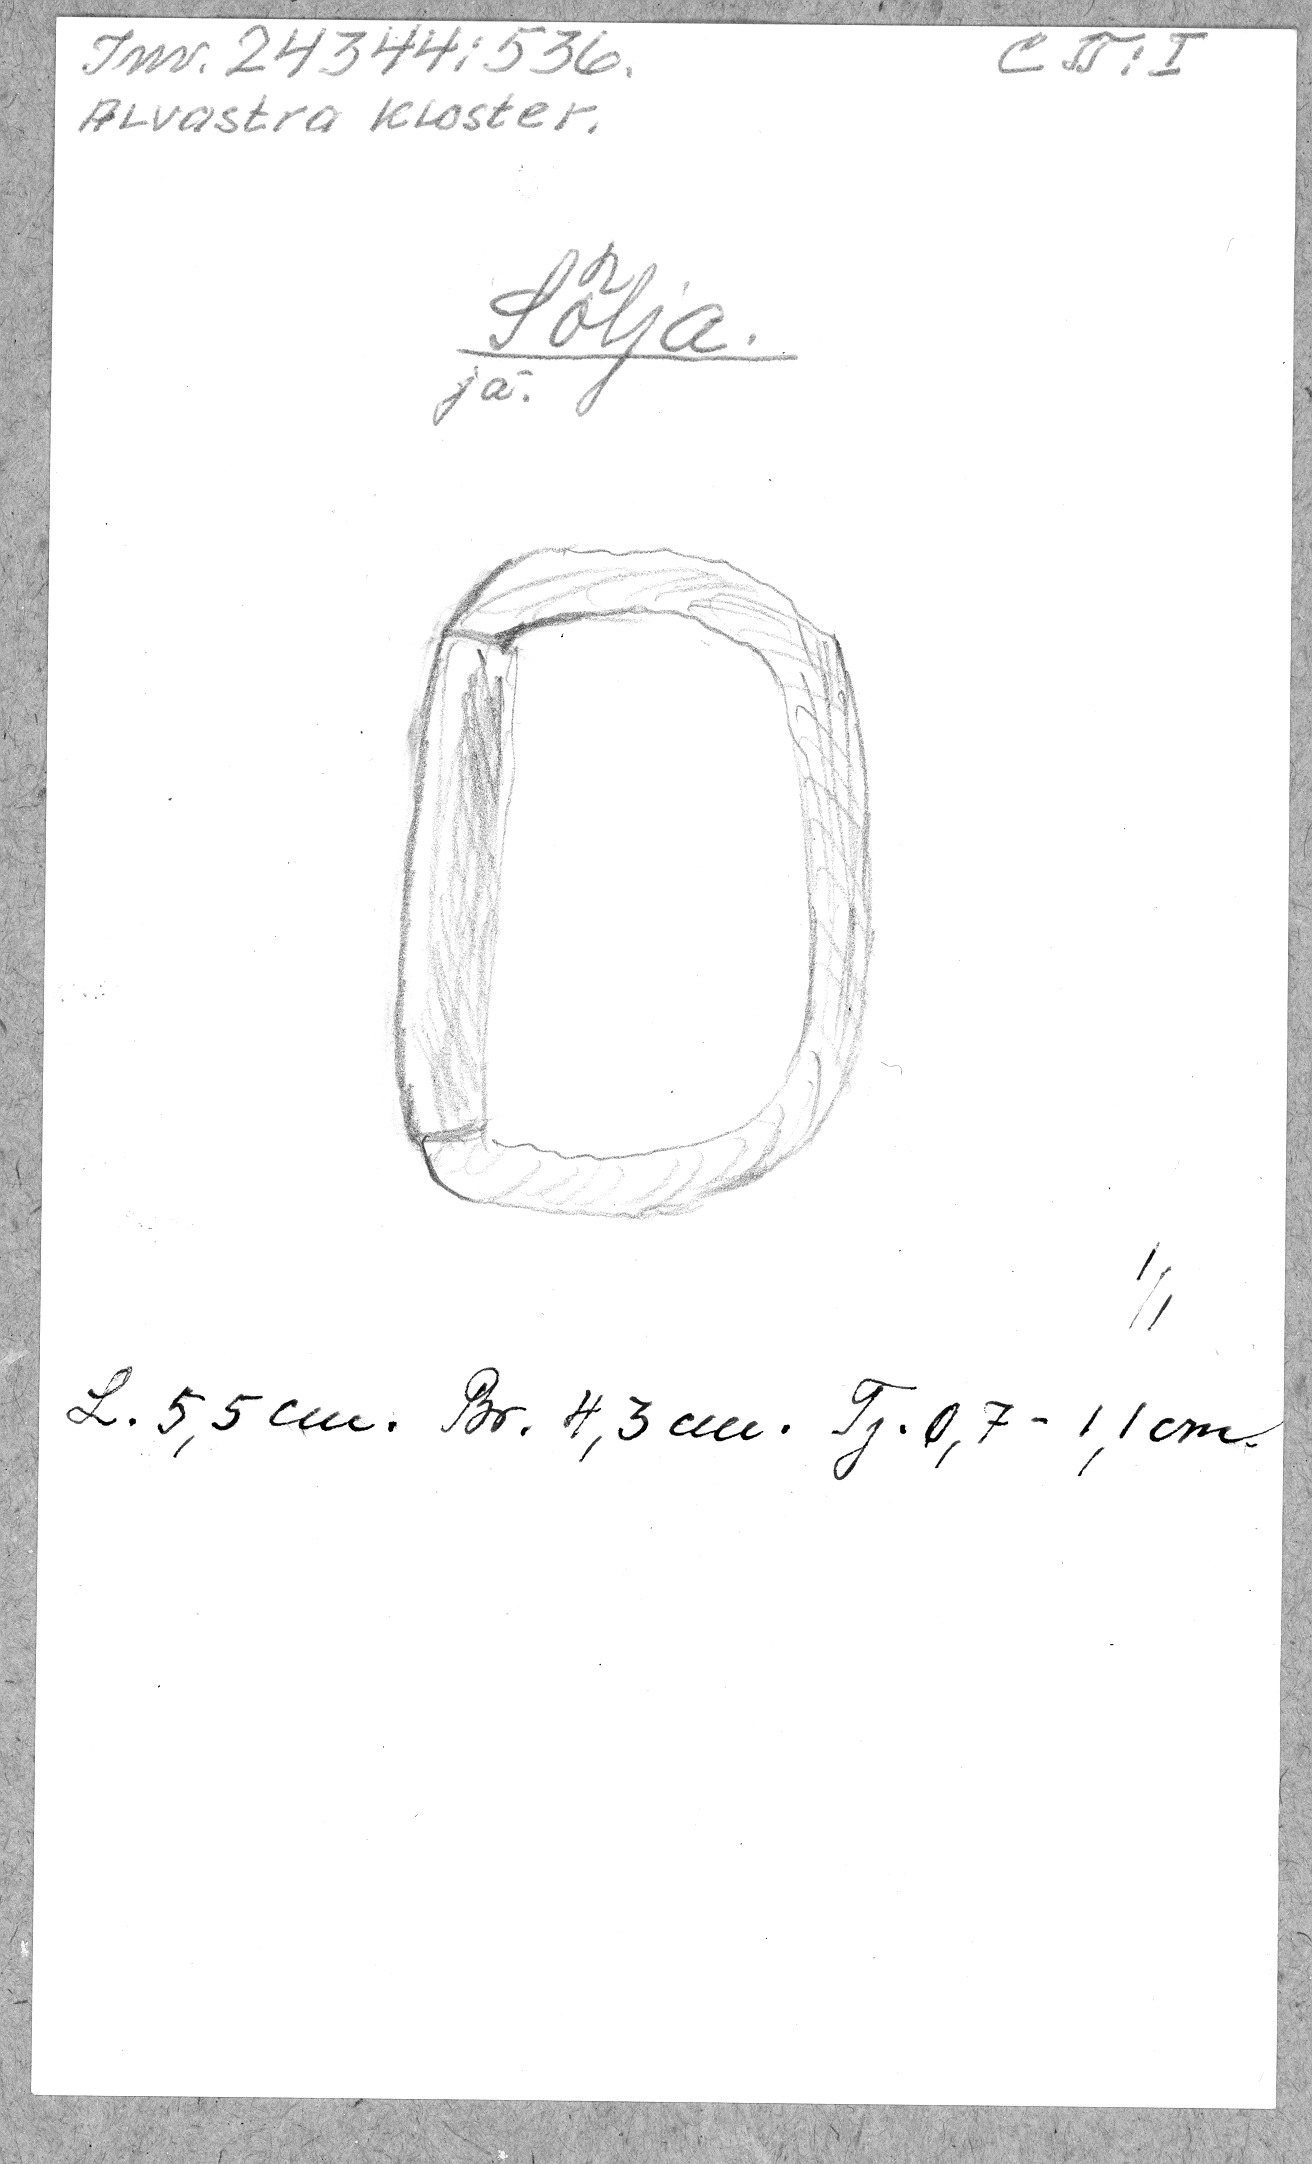 Inv. 24344:536.
C II:I
Alvastra kloster.
Sölja.
jä.
1/1
L. 5,5 cm. Br. 4,3 cm. Tj. 0,7 - 1,1 cm.